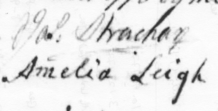 Jas. Strachan
Amelia Leigh